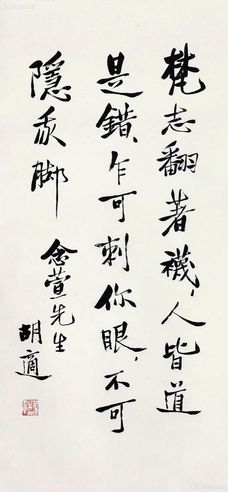 梵志翻著襪，人皆道
是錯，乍可刺你眼，不可
隱我脚
念萱先生
胡適